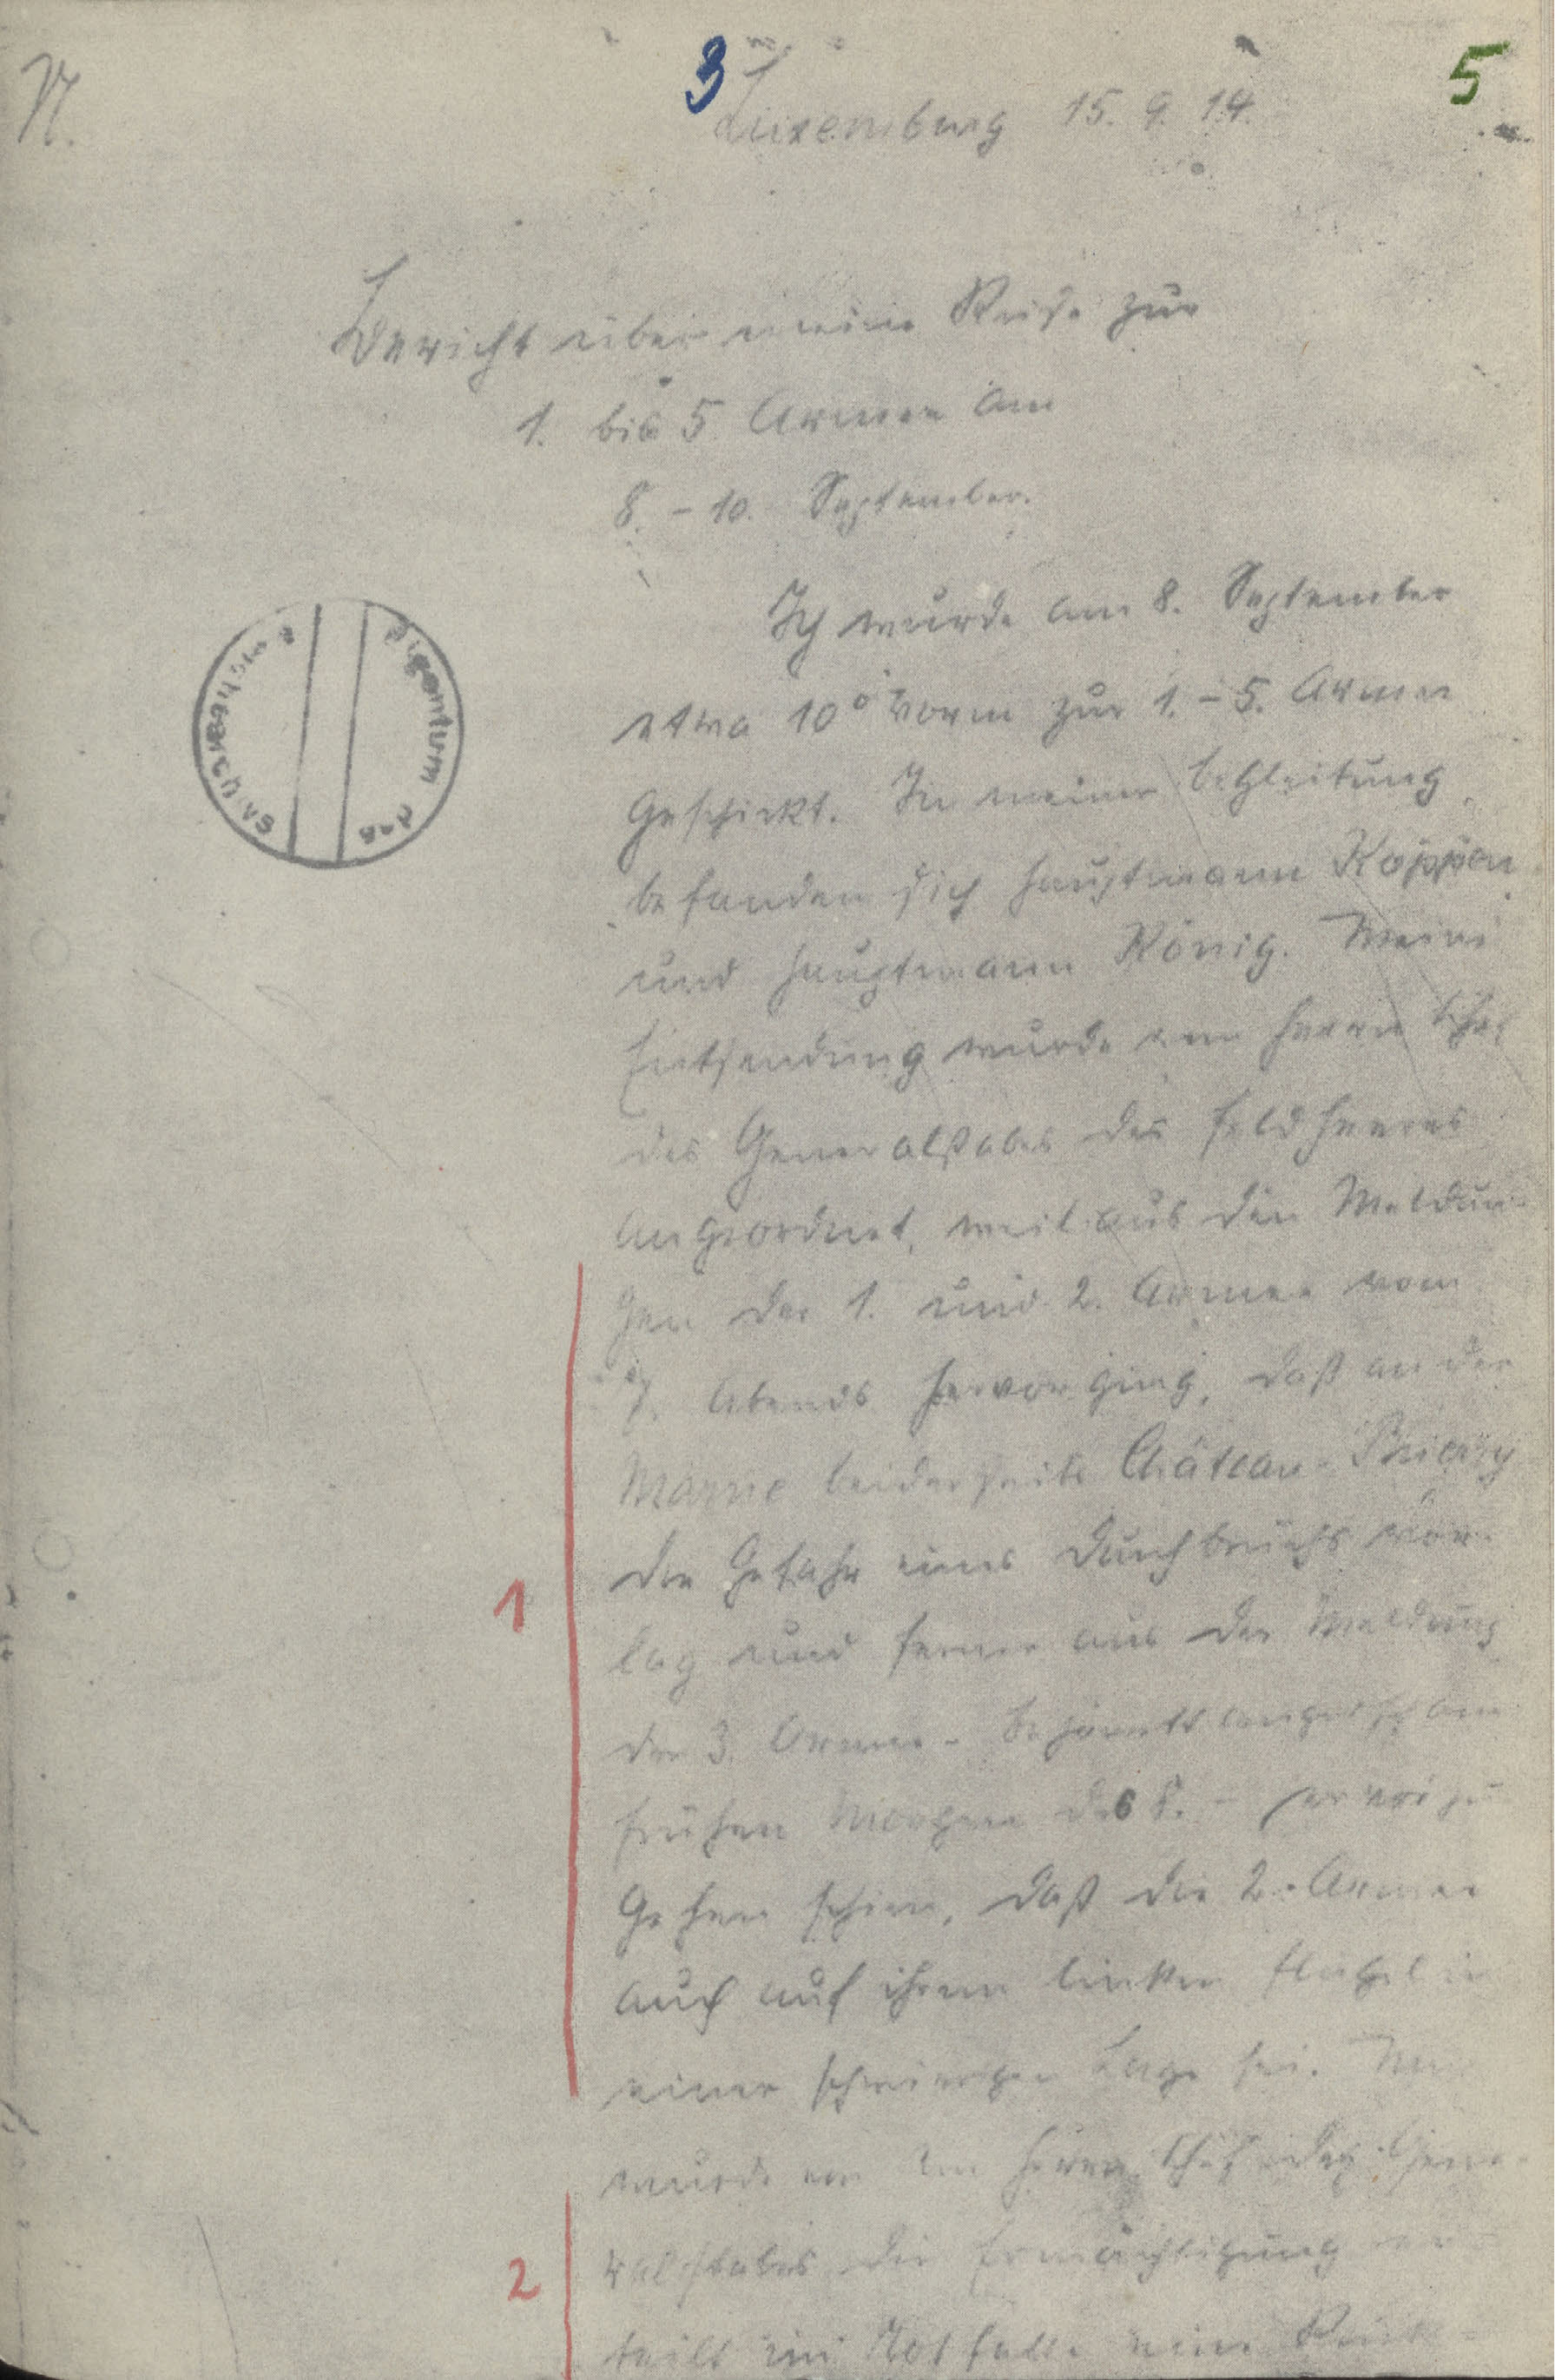 N.
3
5
Luxemburg 15. 9. 14.
Bericht über meine Reise zur
1. bis 5. Armee am
8. – 10. September.
Eigentum des
Reichsarchivs
Ich wurde am 8. September
etwa 10° Vorm zur 1. – 5. Armee
geschickt. In meiner Begleitung
befanden sich Hauptmann Köppen
und Hauptmann König. Meine
Entsendung wurde vom Herrn Chef
des Generalstabes des Feldheeres
angeordnet, weil aus den Meldun-
gen der 1. und 2. Armee vom
7. Abends hervorging, daß an der
Marne beiderseits Château-Thierry
die Gefahr eines Durchbruchs vor-
lag und ferner aus der Meldung
der 3. Armee –
frühen Morgen des 8. –
gehen schien, daß die 2. Armee
auch auf ihrem linken Flügel in
einer schwierigen Lage sei. Mir
wurde von dem Herrn Chef des Gene-
ralstabes die Ermächtigung er-
teilt im Notfalle eine Rück-
1
2